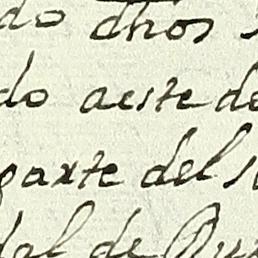 do dhos
do aeste de
parte del s
dal de Qu